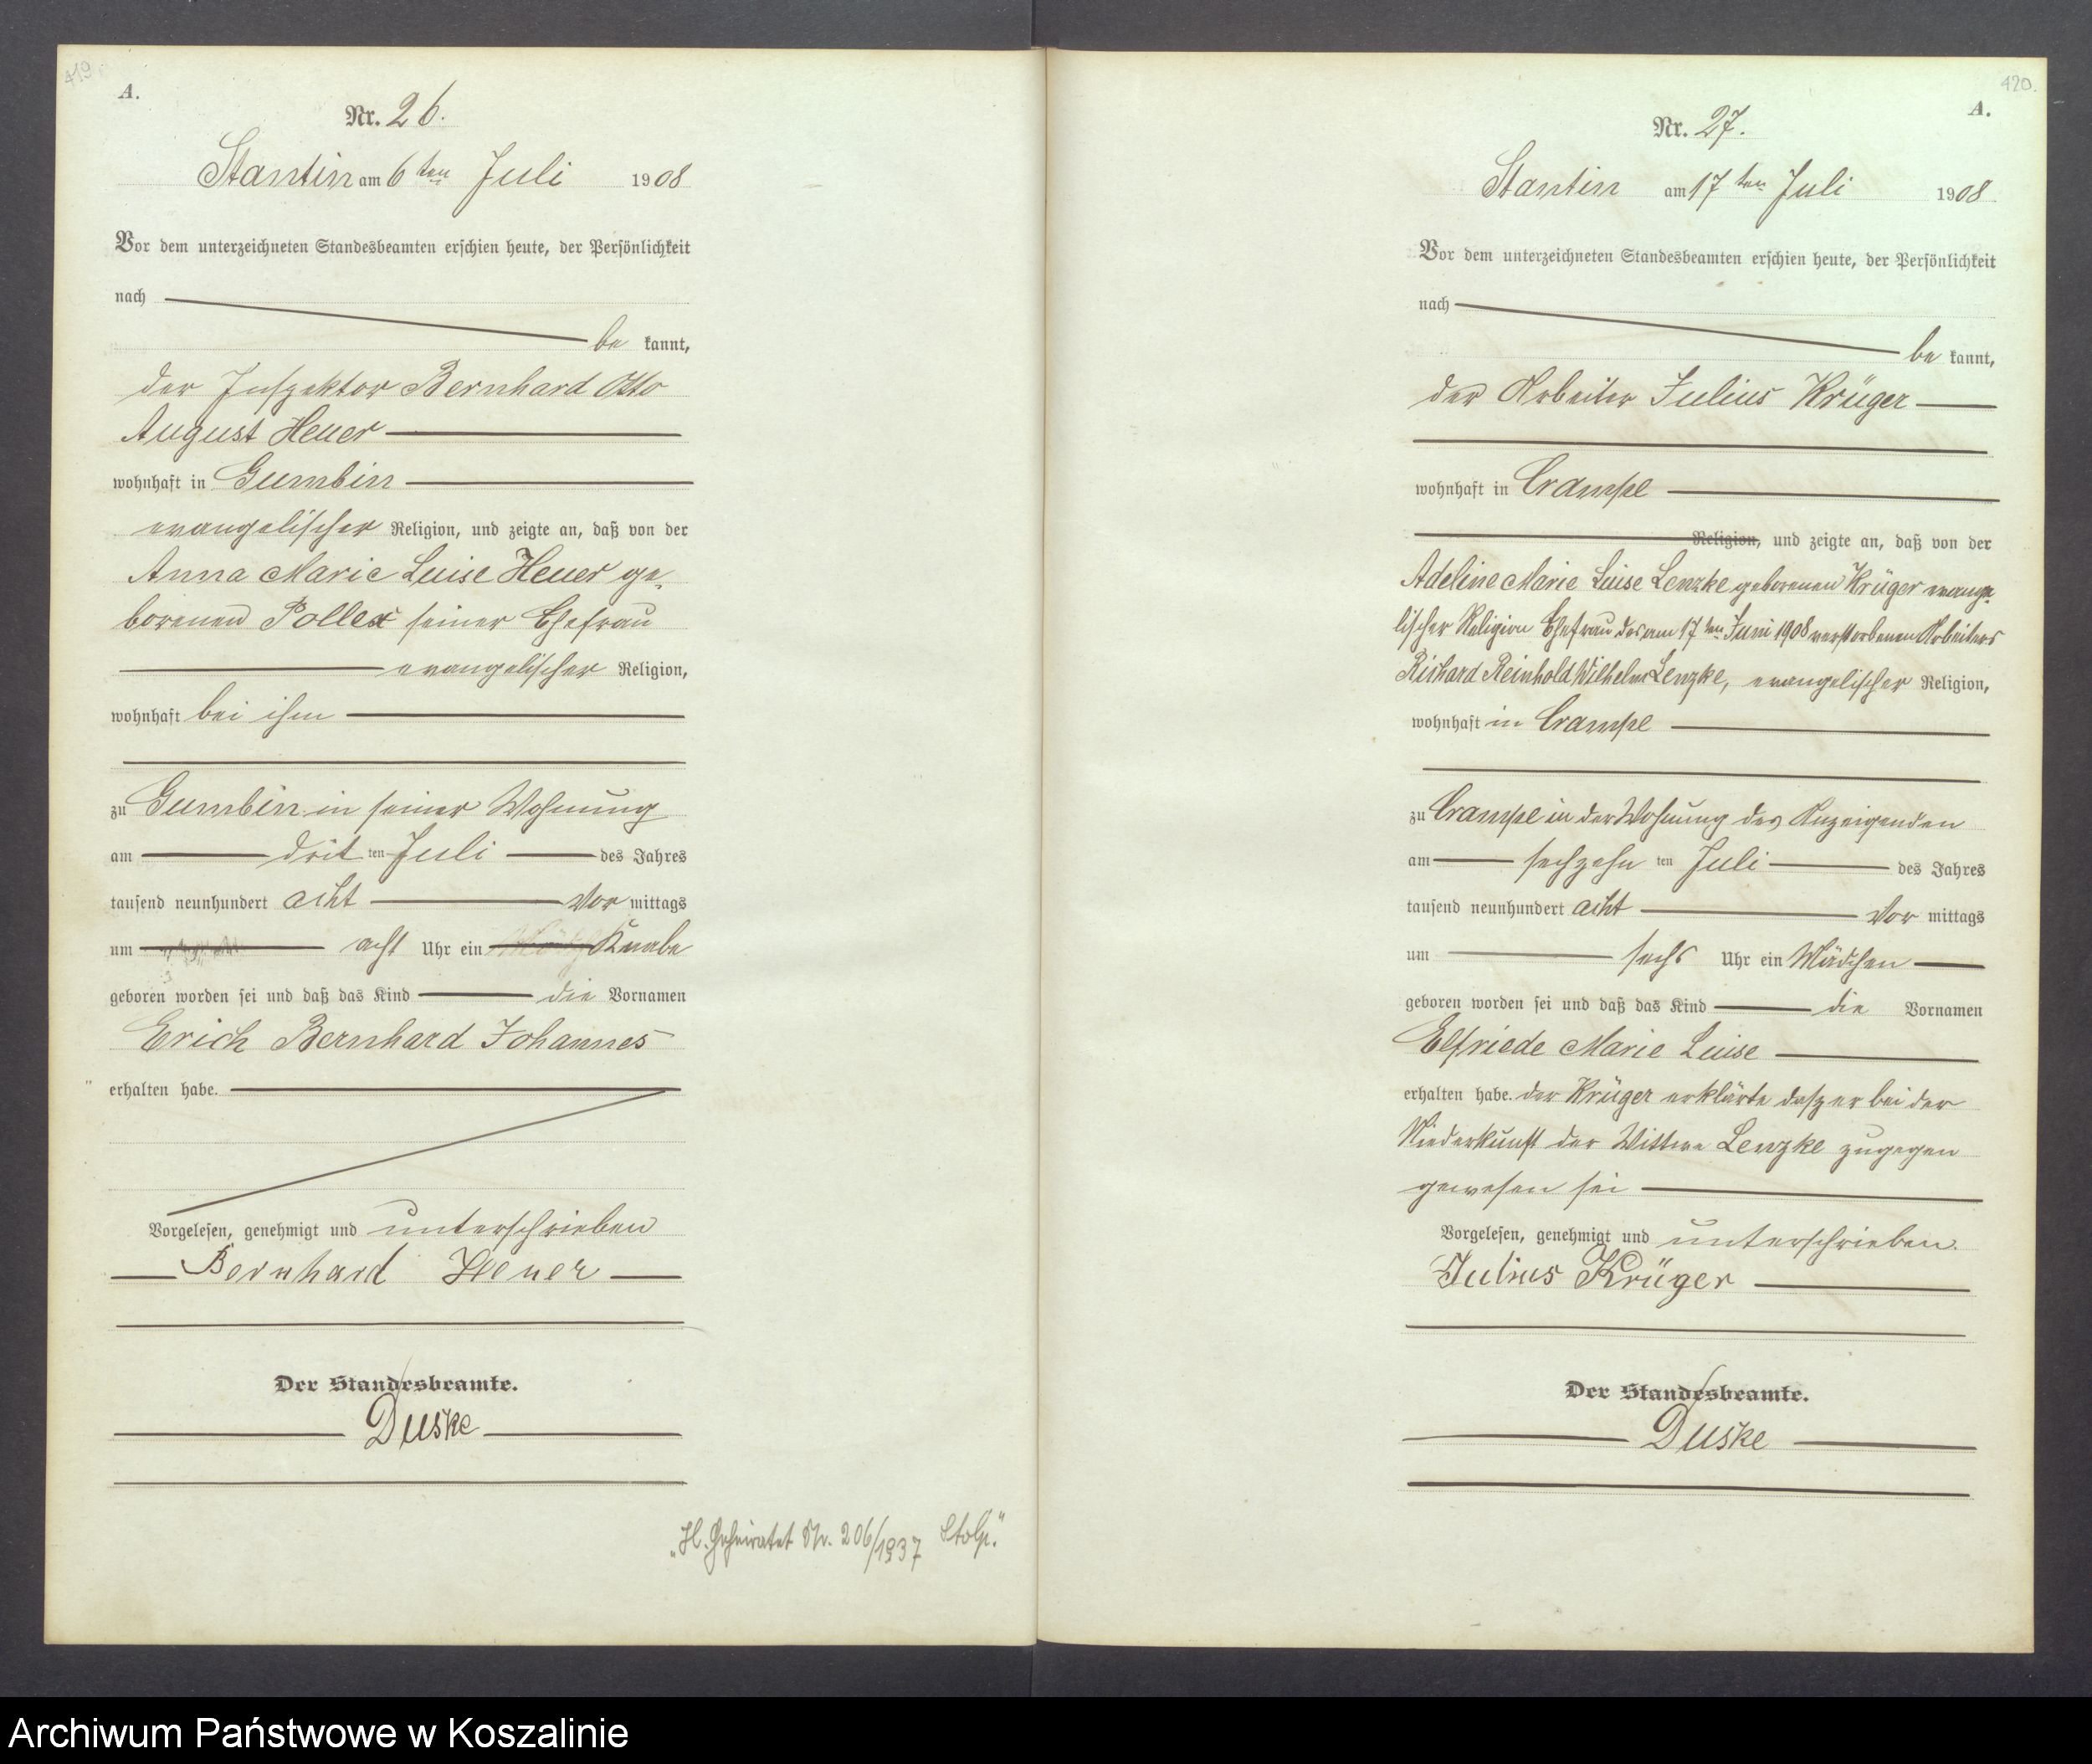 419
A.
Nr. 26.
Stantin am 6ten Juli 1908
Vor dem unterzeichneten Standesbeamten erschien heute, der Persönlichkeit
nach
be kannt,
der Inspektor Bernhard Otto
August Heuer
wohnhaft in Gumbin
evangelischer Religion, und zeigte an, daß von der
Anna Marie Luise Heuer ge-
borenen Pollex seiner Ehefrau
evangelischer Religion,
wohnhaft bei ihm
zu Gumbin in seiner Wohnung
am drit ten Juli des Jahres
tausend neunhundert acht Vor mittags
um acht Uhr ein Knabe
geboren worden sei und daß das Kind die Vornamen
Erich Bernhard Johannes
erhalten habe.
Vorgelesen, genehmigt und unterschrieben
Bernhard Heuer
Der Standesbeamte.
Duske
"H. Geheiratet Nr. 206/1937 Stolp."
420.
A.
Nr. 27.
Stantin am 17ten Juli 1908
Vor dem unterzeichneten Standesbeamten erschien heute, der Persönlichkeit
nach
be kannt,
der Arbeiter Julius Krüger
wohnhaft in Crampe
Religion, und zeigte an, daß von der
Adeline Marie Luise Lenzke geborenen Krüger evange-
lischer Religion Ehefrau des am 17ten Juni 1908 verstorbenen Arbeiters
Richard Reinhold Wilhelm Lenzke, evangelischer Religion,
wohnhaft in Crampe
zu Crampe in der Wohnung des Anzeigenden
am sechzehn ten Juli des Jahres
tausend neunhundert acht Vor mittags
um sechs Uhr ein Mädchen
geboren worden sei und daß das Kind die Vornamen
Elfriede Marie Luise
erhalten habe. der Krüger erklärte daß er bei der
Niederkunft der Wittwe Lenzke zugegen
gewesen sei
Vorgelesen, genehmigt und unterschrieben.
Julius Krüger
Der Standesbeamte.
Duske
Archiwum Państwowe w Koszalinie